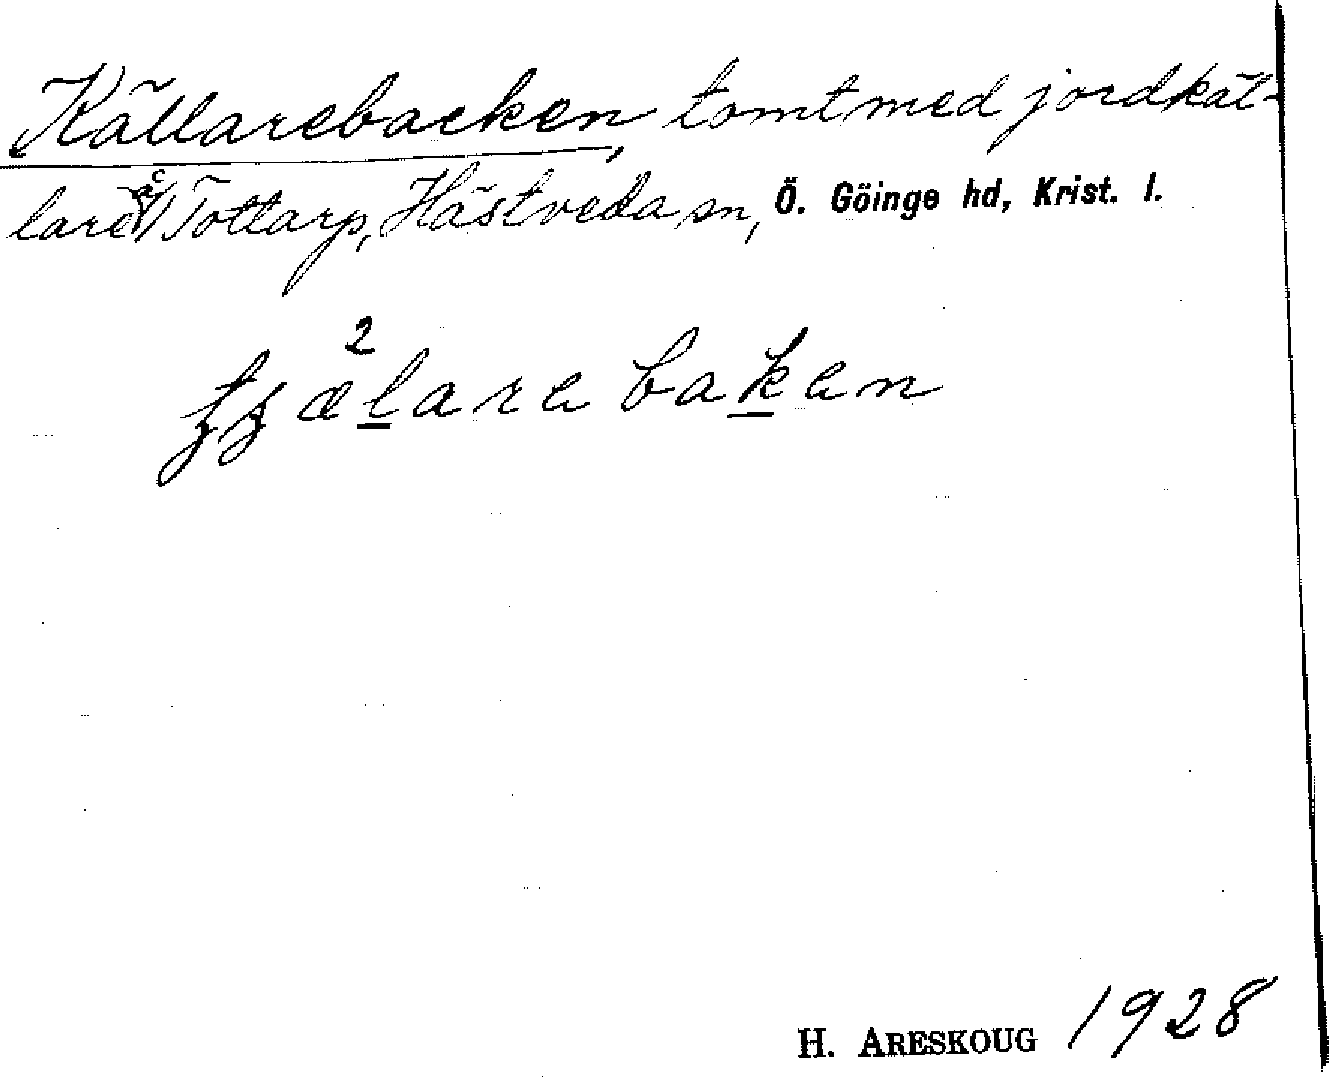 Källarebacken, tomt med jordkäl-
lare å Tottarp, Hästveda sn, Ö. Göinge hd, Krist. l.
2
larebaken
H. ARESKOUG 1928